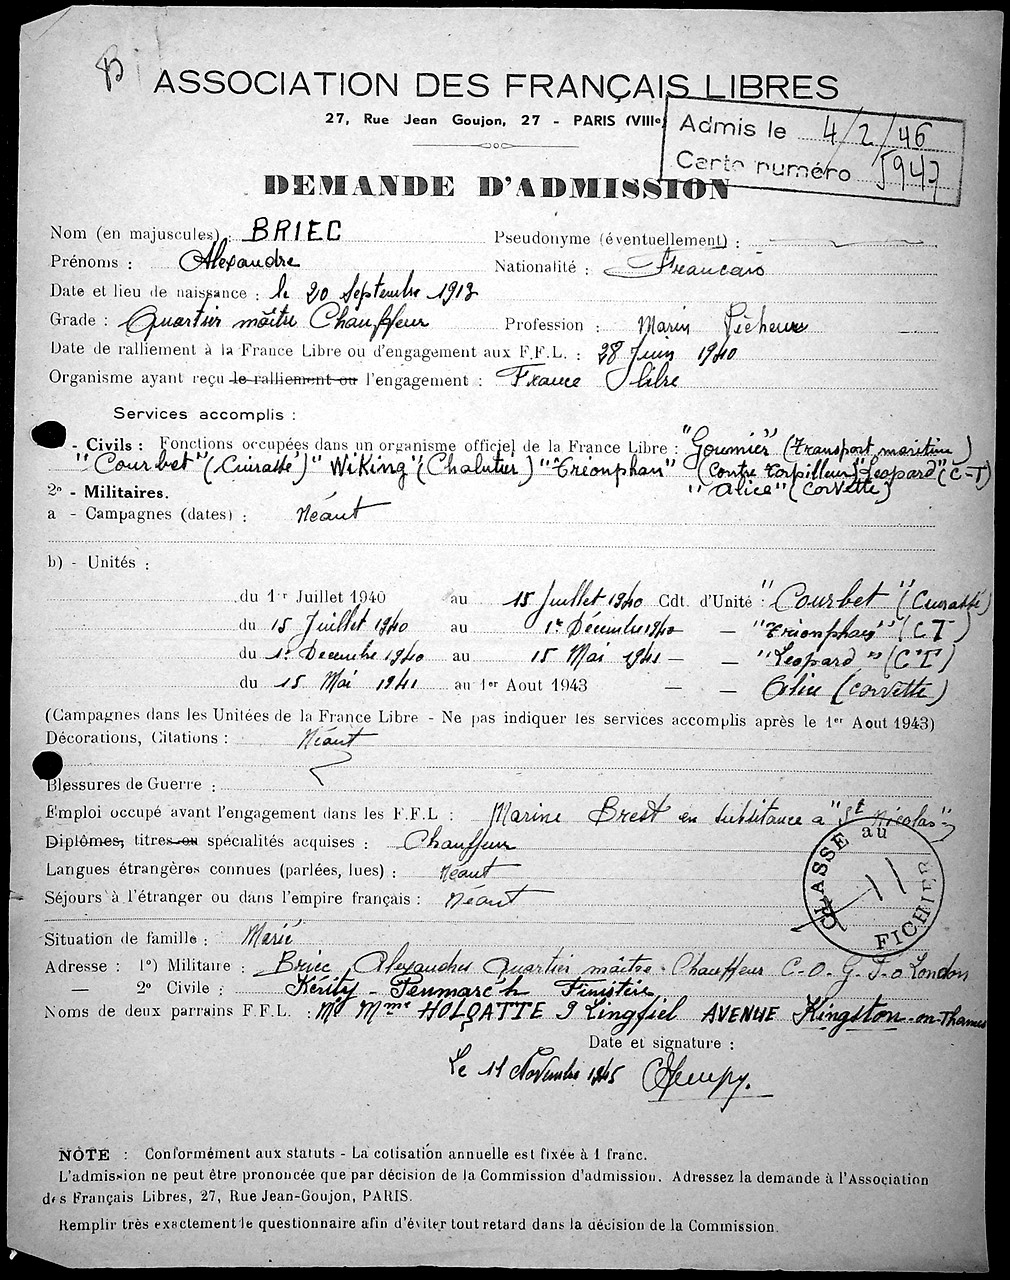 B
ASSOCIATION DES FRANÇAIS LIBRES
27, Rue Jean Goujon, 27 - PARIS (VIIIe
Admis le 4/2/46
Carte numéro 5947
DEMANDE D'ADMISSION
Nom (en majuscules) : BRIEC Pseudonyme (éventuellement) :
Prénoms : Alexandre Nationalité : Francais
Date et lieu de naissance : le 20 Septembre 1912
Grade : Quartier maître Chauffeur Profession : Marin Pêcheur
Date de ralliement à la France Libre ou d'engagement aux F.F.L. : 28 Juin 1940
Organisme ayant reçu le ralliement ou l'engagement : France libre
Services accomplis :
- Civils : Fonctions occupées dans un organisme officiel de la France Libre : "Goumier" (Transport maritime)
"Courbet" (Cuirassé) "Wiking" (Chalutier) "Treonphan" (contre torpilleur) "Leopard" (C-T)
"Alice" (Corvette)
2° - Militaires.
a - Campagnes (dates) : Néant
b) - Unités :
du 1er Juillet 1940 au 15 Juillet 1940 Cdt. d'Unité : "Courbet" (Cuirassé)
du 15 Juillet 1940 au 1er Décembre 1940 — "Trionphan" (C T)
du 1er Decembre 1940 au 15 Mai 1941 — — "Leopard" (C T)
du 15 Mai 1941 au 1er Aout 1943 — — Alice (corvette)
(Campagnes dans les Unitées de la France Libre - Ne pas indiquer les services accomplis après le 1er Aout 1943)
Décorations, Citations : Néant
Blessures de Guerre :
Emploi occupé avant l'engagement dans les F.F.L : Marine Brest en subsitance a "St Nicolas"
Diplômes, titres ou spécialités acquises : Chauffeur
Langues étrangères connues (parlées, lues) : Néant
Séjours à l'étranger ou dans l'empire français : Néant
CLASSE au FICHIER
11
Situation de famille : Marié
Adresse : 1°) Militaire : Briec Alexandre Quartier maître Chauffeur C.O.G.P.o London
— 2° Civile : Kérity - Penmarc'h Finistère
Noms de deux parrains F.F.L. : Mr Mme HOLGATTE 9 Lingfiel AVENUE Kingston-on-Thames
Date et signature :
Le 11 Novembre 1945
NOTE : Conformément aux statuts - La cotisation annuelle est fixée à 1 franc.
L'admission ne peut être prononcée que par décision de la Commission d'admission. Adressez la demande à l'Association
des Français Libres, 27, Rue Jean-Goujon, PARIS.
Remplir très exactement le questionnaire afin d'éviter tout retard dans la décision de la Commission.